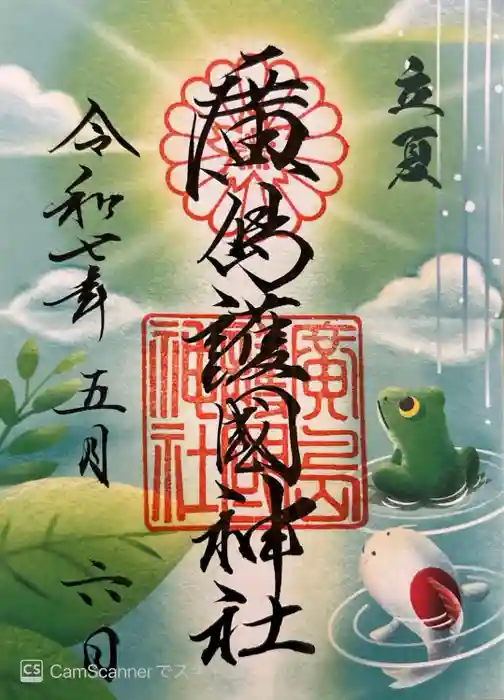 立夏
廣島護國神社
令和七年五月六日
廣島
護國
神社
CS CamScannerでス